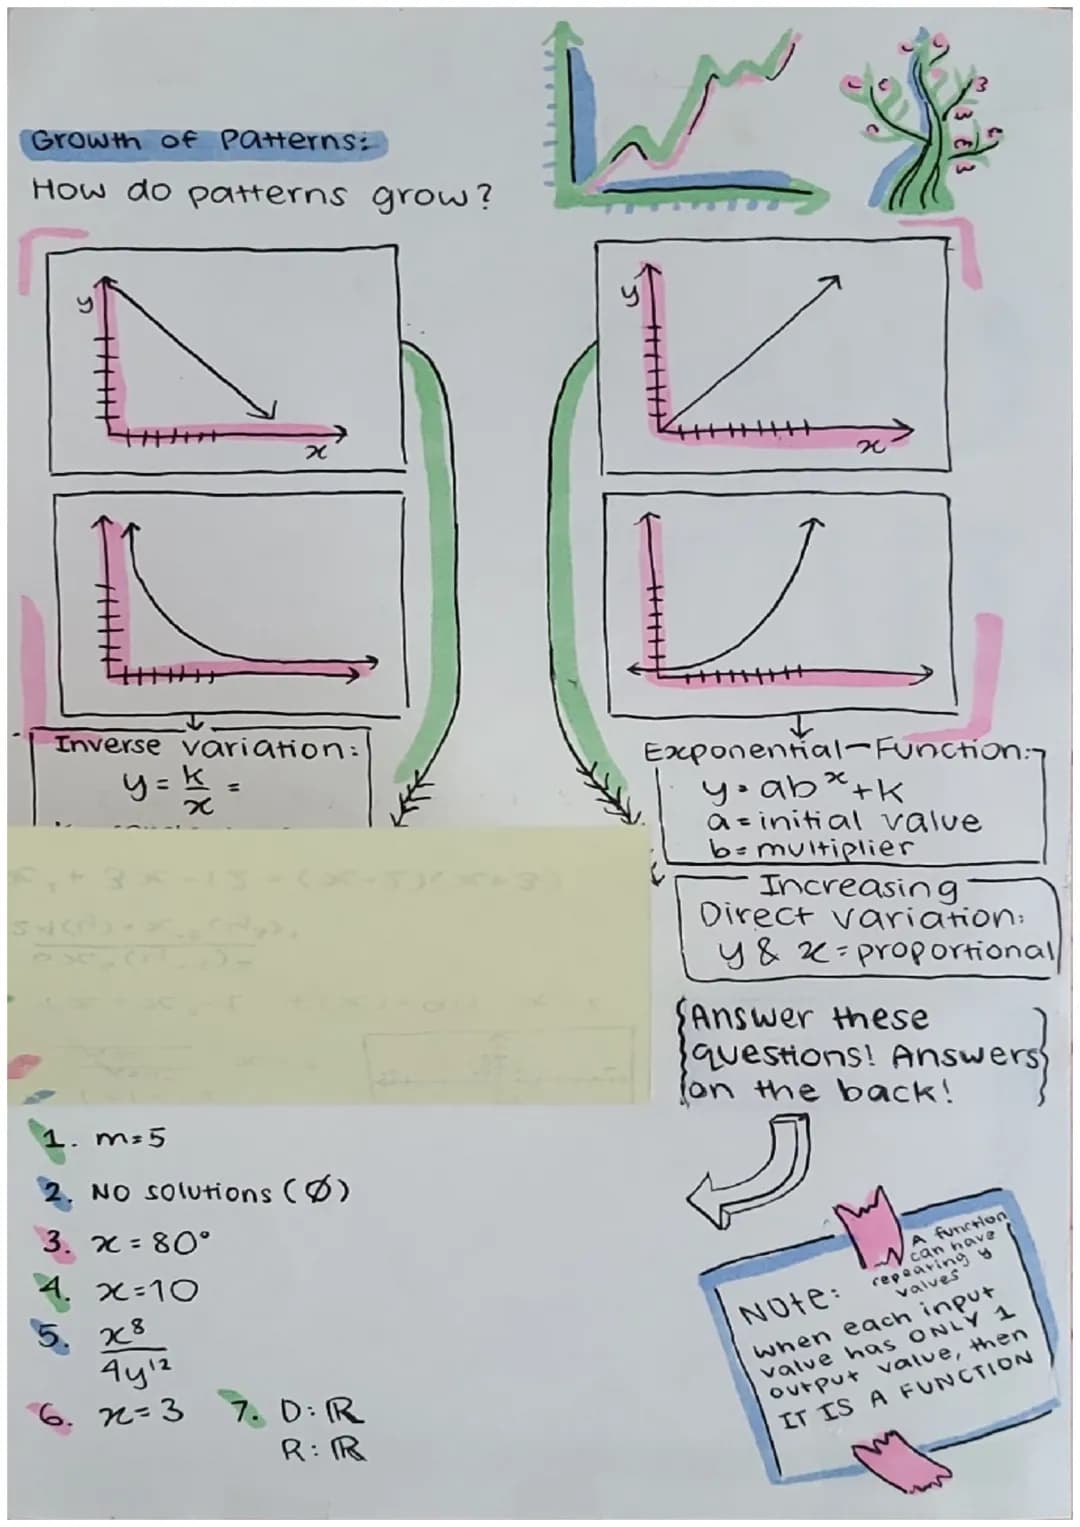 Growth of Patterns:
How do patterns grow?
y
x
y
x
Inverse variation:
y = k/x =
Exponential-Function:
y = ab^x + k
a = initial value
b = multiplier
Increasing
Direct variation:
y & x = proportional
Answer these
questions! Answers
on the back!
1. m=5
2. NO solutions (Ø)
3. x = 80°
4. x=10
5. x^8/4y^12
6. x=3
7. D: ℝ
R: ℝ
A function
can have
repeating y
values
Note:
when each input
value has ONLY 1
output value, then
IT IS A FUNCTION